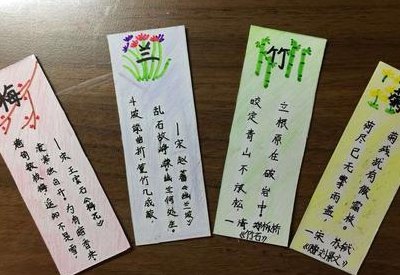 梅
墙角数枝梅 遥知不是雪
凌寒独自开，为有暗香来
—宋 王安石《梅花》
兰
乱石
—宋 赵蕃
竹
咬定青山不放松
立根原在破岩中。
—清 郑板桥
《竹石》
菊
荷尽已无擎雨盖
菊残犹有傲霜枝。
—宋 苏轼
《赠刘景文》